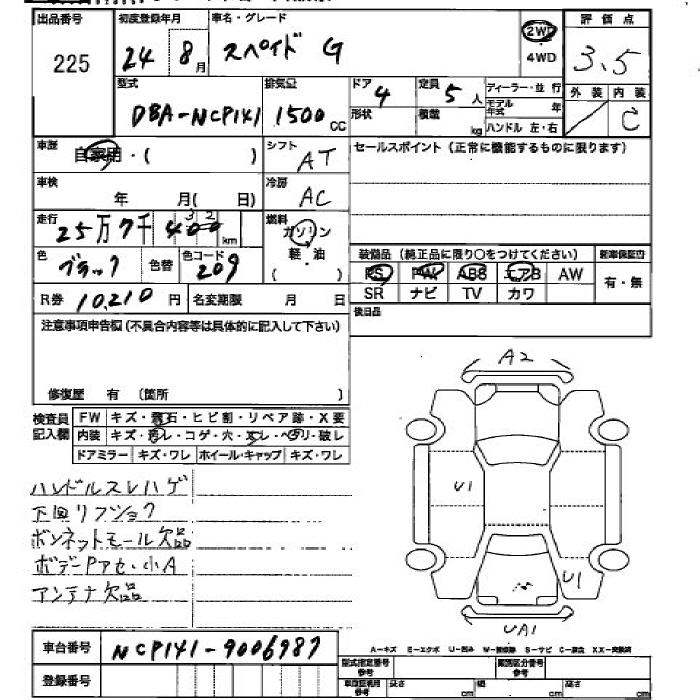 出品番号 初度登録年月 車名・グレード 評価点
225 24 8月 スペイド G 2WD 4WD 3.5
外装 内装
C
型式 排気量 ドア 定員 ディーラー・並行
DBA-NCP141 1500cc 4 5人 モデル年式 年
形状 積載 kg ハンドル 左・右
車歴 自家用・( ) シフト AT セールスポイント (正常に機能するものに限ります)
車検 年 月( 日) 冷房 AC
走行 25万7千400km 燃料 ガソリン 軽・油 ( )
32
装備品 (純正品に限り○をつけてください) 新車保証書
色 ブラック 色替 色コード 209
PS PW ABS エアB AW 有・無
SR ナビ TV カワ
R券 10,210円 名変期限 月 日 後日品
注意事項申告欄(不具合内容等は具体的に記入して下さい)
修復歴 有 (箇所
検査員記入欄 FW キズ・飛石・ヒビ割・リペア跡・X要
内装 キズ・汚レ・コゲ・穴・スレ・ヘタリ・破レ
ドアミラー キズ・ワレ ホイール・キャップ キズ・ワレ
ハンドルスレハゲ
下回リフショク
ボンネットモール欠品
ボデーPアセ・小A
アンテナ欠品
A2
U1
U1
UA1
車台番号 NCP141-9006987
A-キズ E-エクボ U-凹み W-補修跡 S-サビ C-腐食 XX-交換済
登録番号 型式指定番号 参考 類別区分番号 参考
車庫証明用 参考 長さ cm 幅 cm 高さ cm